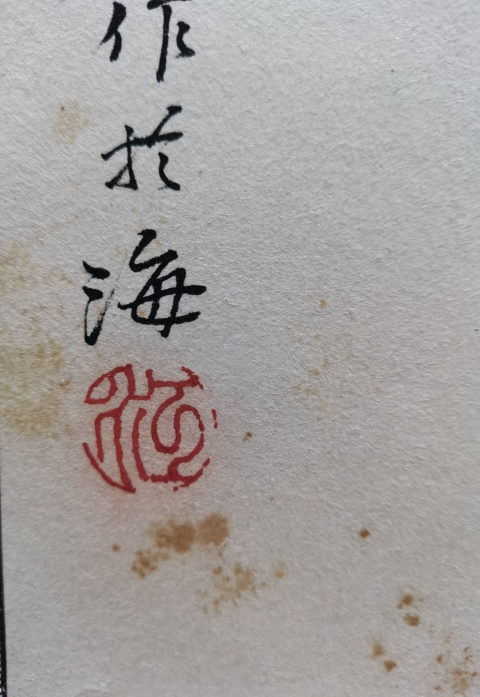 作於海